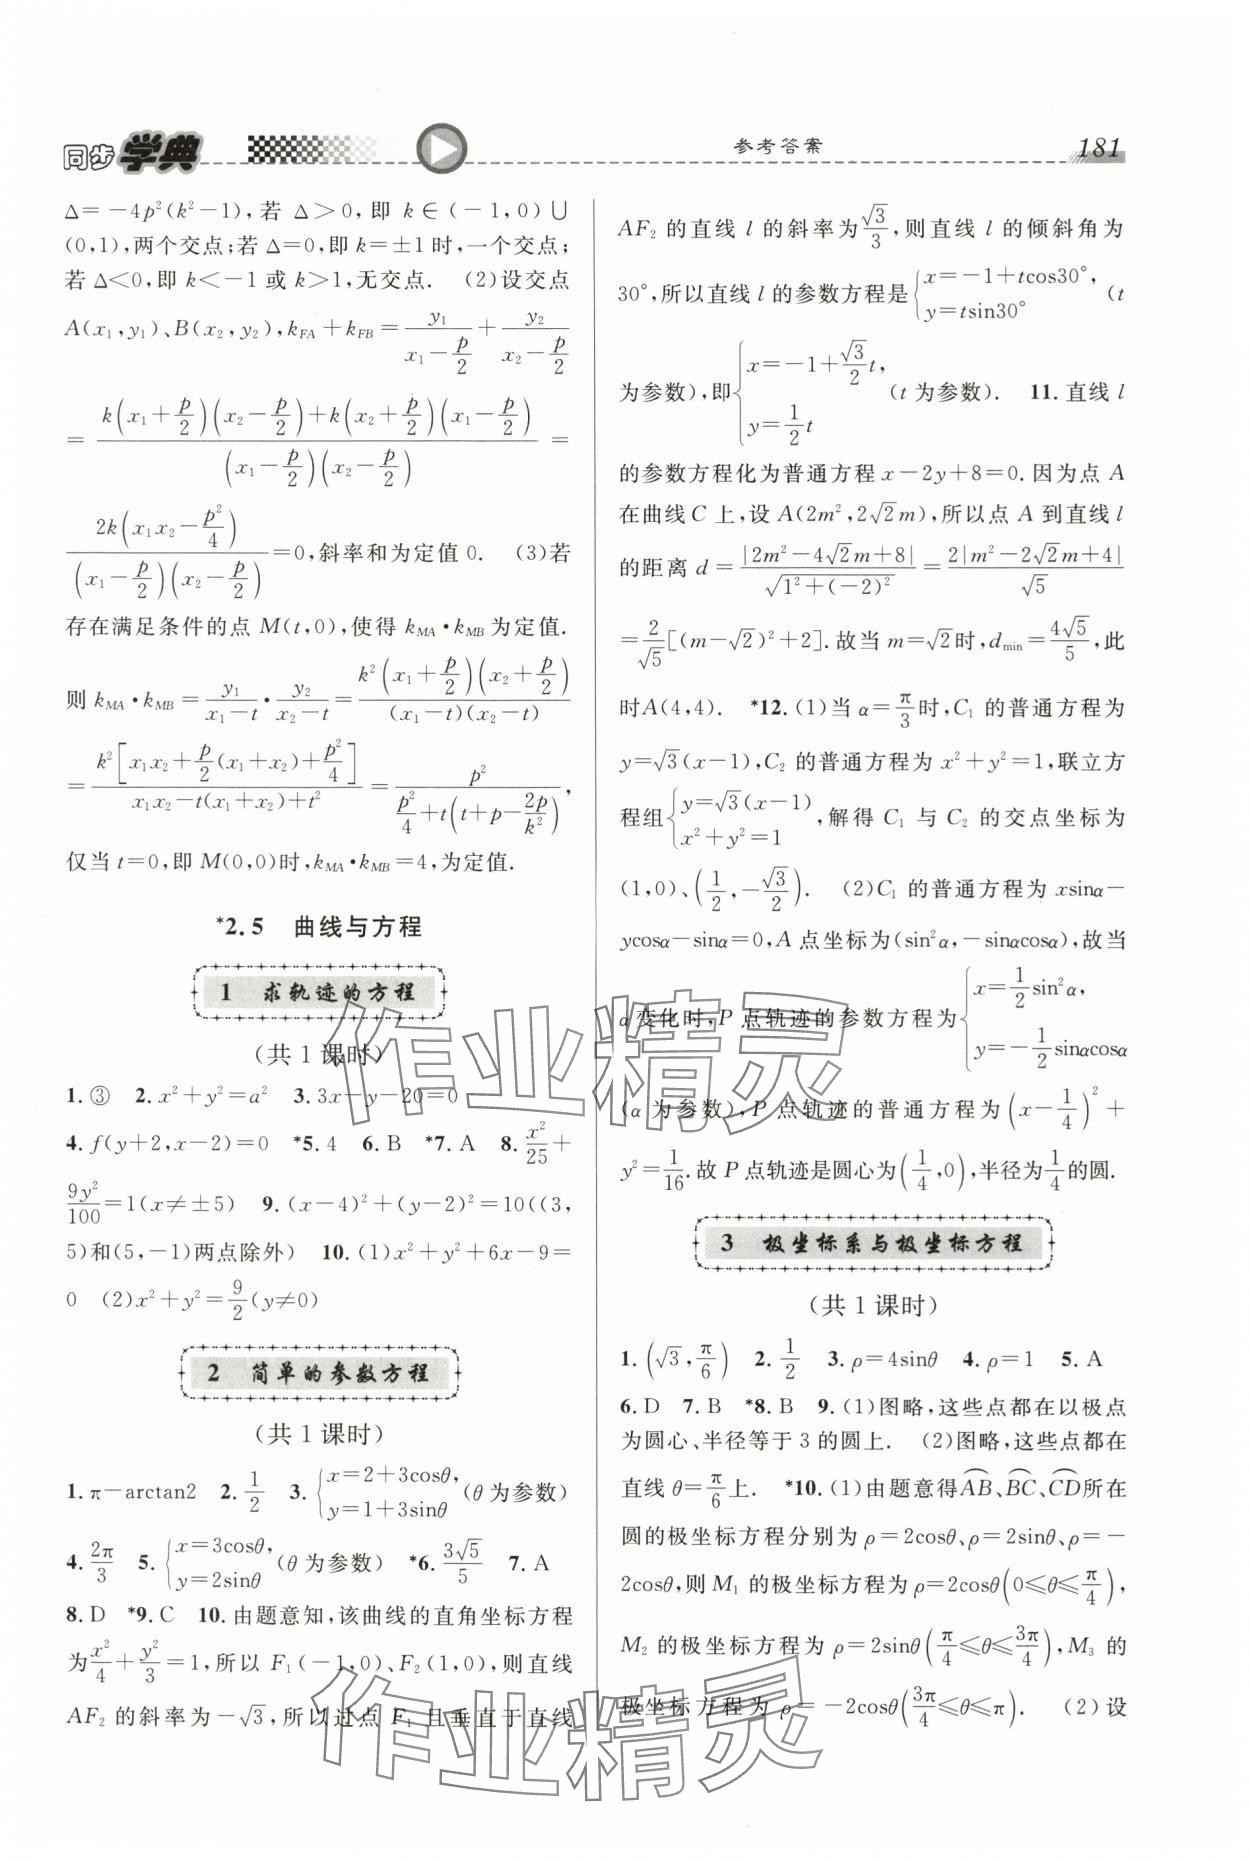 同步学典
参考答案
181
Δ=-4p²(k²-1),若 Δ>0,即 k∈(-1,0)∪
(0,1),两个交点;若 Δ=0,即 k=±1时,一个交点;
若 Δ<0,即 k<-1 或 k>1,无交点. (2)设交点
A(x₁,y₁)、B(x₂,y₂),k_{FA}+k_{FB}=\frac{y₁}{x₁-\frac{p}{2}}+\frac{y₂}{x₂-\frac{p}{2}}
=\frac{k(x₁+\frac{p}{2})(x₂-\frac{p}{2})+k(x₂+\frac{p}{2})(x₁-\frac{p}{2})}{(x₁-\frac{p}{2})(x₂-\frac{p}{2})}=
\frac{2k(x₁x₂-\frac{p²}{4})}{(x₁-\frac{p}{2})(x₂-\frac{p}{2})}=0,斜率和为定值 0. (3)若
存在满足条件的点 M(t,0),使得 k_{MA}·k_{MB}为定值.
则 k_{MA}·k_{MB}=\frac{y₁}{x₁-t}·\frac{y₂}{x₂-t}=\frac{k²(x₁+\frac{p}{2})(x₂+\frac{p}{2})}{(x₁-t)(x₂-t)}
=\frac{k²[x₁x₂+\frac{p}{2}(x₁+x₂)+\frac{p²}{4}]}{x₁x₂-t(x₁+x₂)+t²}=\frac{p²}{\frac{p²}{4}+t(t+p-\frac{2p}{k²})},
仅当 t=0,即 M(0,0)时,k_{MA}·k_{MB}=4,为定值.
*2.5 曲线与方程
1 求轨迹的方程
(共 1 课时)
1. ③ 2. x²+y²=a² 3. 3x-y-20=0
4. f(y+2,x-2)=0 *5. 4 6. B *7. A 8. \frac{x²}{25}+
\frac{9y²}{100}=1(x≠±5) 9. (x-4)²+(y-2)²=10((3,
5)和(5,-1)两点除外) 10. (1)x²+y²+6x-9=
0 (2)x²+y²=\frac{9}{2}(y≠0)
2 简单的参数方程
(共 1 课时)
1. π-arctan2 2. \frac{1}{2} 3. {x=2+3cosθ, y=1+3sinθ (θ 为参数)
4. \frac{2π}{3} 5. {x=3cosθ, y=2sinθ (θ 为参数) *6. \frac{3√5}{5} 7. A
8. D *9. C 10. 由题意知,该曲线的直角坐标方程
为\frac{x²}{4}+\frac{y²}{3}=1,所以 F₁(-1,0)、F₂(1,0),则直线
AF₂ 的斜率为-√3,所以过点 F₁ 且垂直于直线
AF₂ 的直线 l 的斜率为\frac{√3}{3},则直线 l 的倾斜角为
30°,所以直线 l 的参数方程是{x=-1+tcos30°, y=tsin30° (t
为参数),即{x=-1+\frac{√3}{2}t, y=\frac{1}{2}t (t 为参数). 11. 直线 l
的参数方程化为普通方程 x-2y+8=0. 因为点 A
在曲线C 上,设 A(2m²,2√2m),所以点 A 到直线 l
的距离 d=\frac{|2m²-4√2m+8|}{√{1²+(-2)²}}=\frac{2|m²-2√2m+4|}{√5}
=\frac{2}{√5}[(m-√2)²+2]. 故当 m=√2时,d_{min}=\frac{4√5}{5},此
时A(4,4). *12. (1)当 α=\frac{π}{3}时,C₁ 的普通方程为
y=√3(x-1),C₂ 的普通方程为 x²+y²=1,联立方
程组{y=√3(x-1) x²+y²=1 ,解得 C₁ 与 C₂ 的交点坐标为
(1,0)、(\frac{1}{2},-\frac{√3}{2}). (2)C₁ 的普通方程为 xsinα-
ycosα-sinα=0,A 点坐标为(sin²α,-sinαcosα),故当
α变化时,P 点轨迹的参数方程为{x=\frac{1}{2}sin²α, y=-\frac{1}{2}sinαcosα
(α 为参数),P 点轨迹的普通方程为(x-\frac{1}{4})²+
y²=\frac{1}{16}. 故 P 点轨迹是圆心为(\frac{1}{4},0),半径为\frac{1}{4}的圆.
3 极坐标系与极坐标方程
(共 1 课时)
1. (√3,\frac{π}{6}) 2. \frac{1}{2} 3. ρ=4sinθ 4. ρ=1 5. A
6. D 7. B *8. B 9. (1)图略,这些点都在以极点
为圆心、半径等于 3 的圆上. (2)图略,这些点都在
直线 θ=\frac{π}{6}上. *10. (1)由题意得⌒AB、⌒BC、⌒CD所在
圆的极坐标方程分别为 ρ=2cosθ、ρ=2sinθ、ρ=-
2cosθ,则 M₁ 的极坐标方程为 ρ=2cosθ(0≤θ≤\frac{π}{4}),
M₂ 的极坐标方程为 ρ=2sinθ(\frac{π}{4}≤θ≤\frac{3π}{4}),M₃ 的
极坐标方程为 ρ=-2cosθ(\frac{3π}{4}≤θ≤π). (2)设
作业精灵
作业精灵